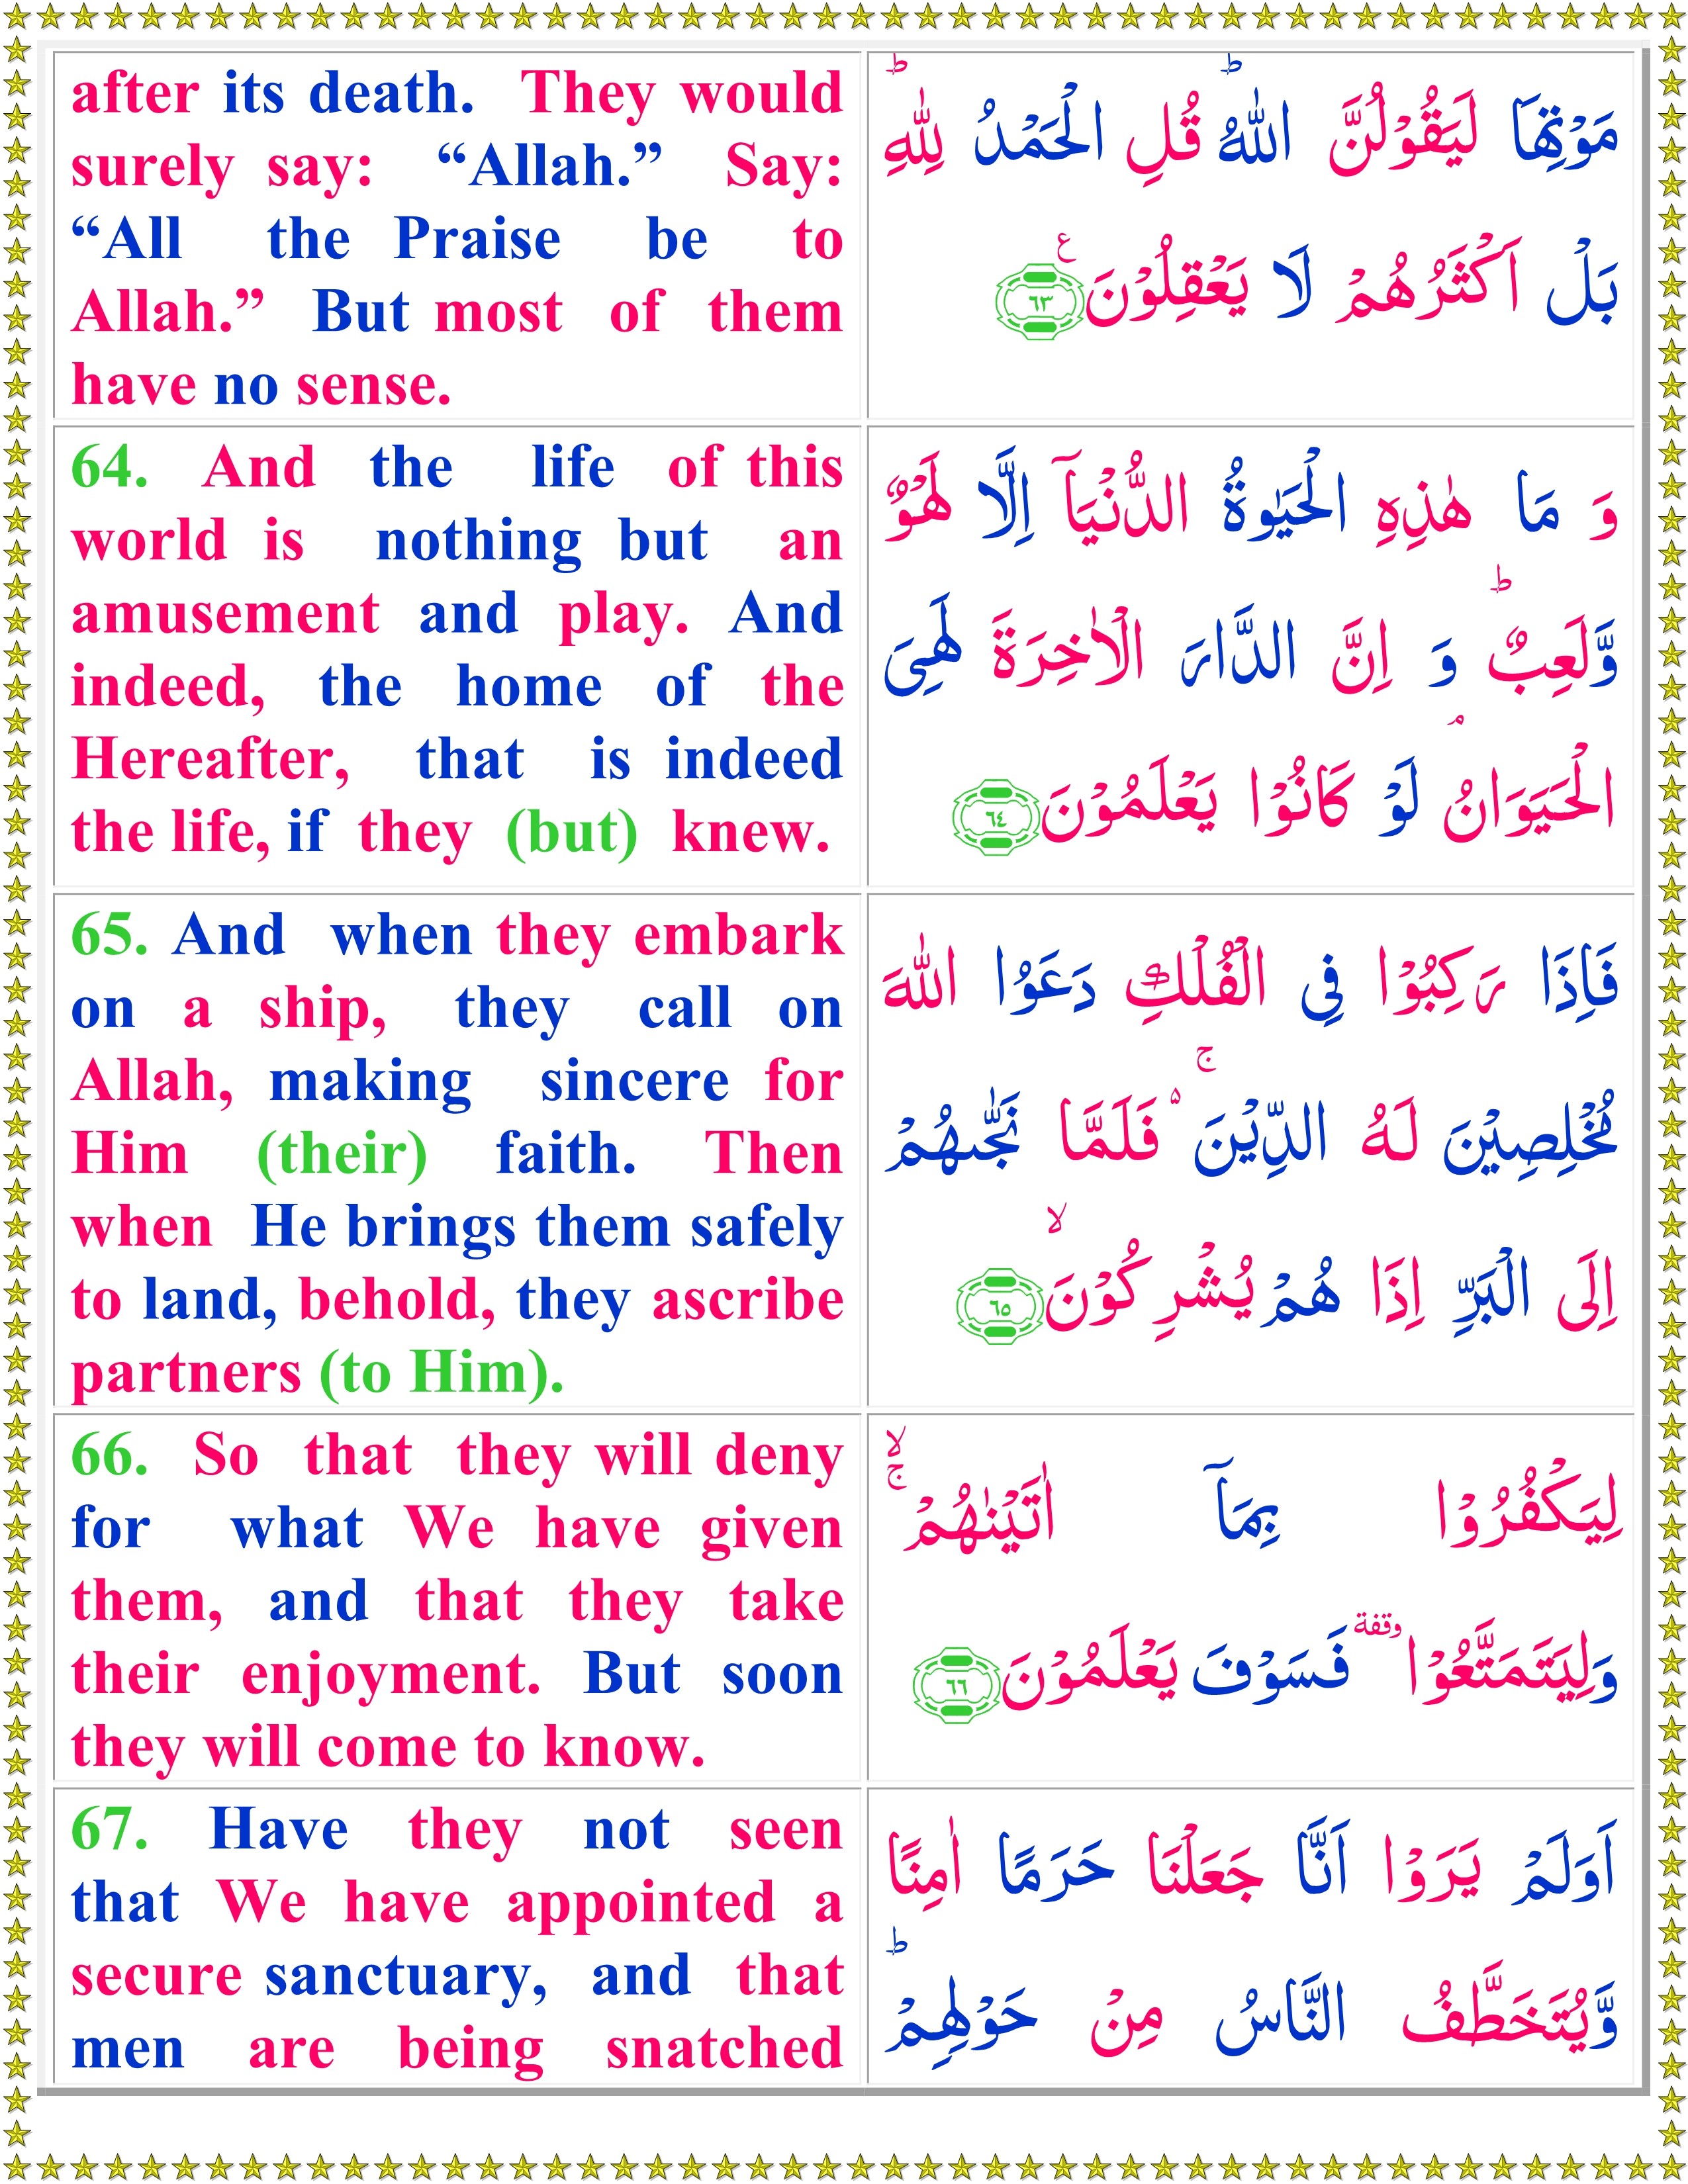 after its death. They would
surely say: “Allah.” Say:
“All the Praise be to
Allah.” But most of them
have no sense.
مَوْتِهَا لَيَقُوْلُنَّ اللّٰهُ ؕ قُلِ الْحَمْدُ لِلّٰهِ ؕ
بَلْ اَكْثَرُهُمْ لَا يَعْقِلُوْنَ ۧ ٦٣
64. And the life of this
world is nothing but an
amusement and play. And
indeed, the home of the
Hereafter, that is indeed
the life, if they (but) knew.
وَ مَا هٰذِهِ الْحَيٰوةُ الدُّنْيَاۤ اِلَّا لَهْوٌ
وَّلَعِبٌ ؕ وَ اِنَّ الدَّارَ الْاٰخِرَةَ لَهِىَ
الْحَيَوَانُ ۘ لَوْ كَانُوْا يَعْلَمُوْنَ ٦٤
65. And when they embark
on a ship, they call on
Allah, making sincere for
Him (their) faith. Then
when He brings them safely
to land, behold, they ascribe
partners (to Him).
فَاِذَا رَكِبُوْا فِى الْفُلْكِ دَعَوُا اللّٰهَ
مُخْلِصِيْنَ لَهُ الدِّيْنَ ۚ۬ فَلَمَّا نَجّٰٮهُمْ
اِلَى الْبَرِّ اِذَا هُمْ يُشْرِكُوْنَ ۙ ٦٥
66. So that they will deny
for what We have given
them, and that they take
their enjoyment. But soon
they will come to know.
لِيَكْفُرُوْا بِمَاۤ اٰتَيْنٰهُمْ ۙۚ
وَلِيَتَمَتَّعُوْا وقفة فَسَوْفَ يَعْلَمُوْنَ ٦٦
67. Have they not seen
that We have appointed a
secure sanctuary, and that
men are being snatched
اَوَلَمْ يَرَوْا اَنَّا جَعَلْنَا حَرَمًا اٰمِنًا
وَّيُتَخَطَّفُ النَّاسُ مِنْ حَوْلِهِمْ ؕ